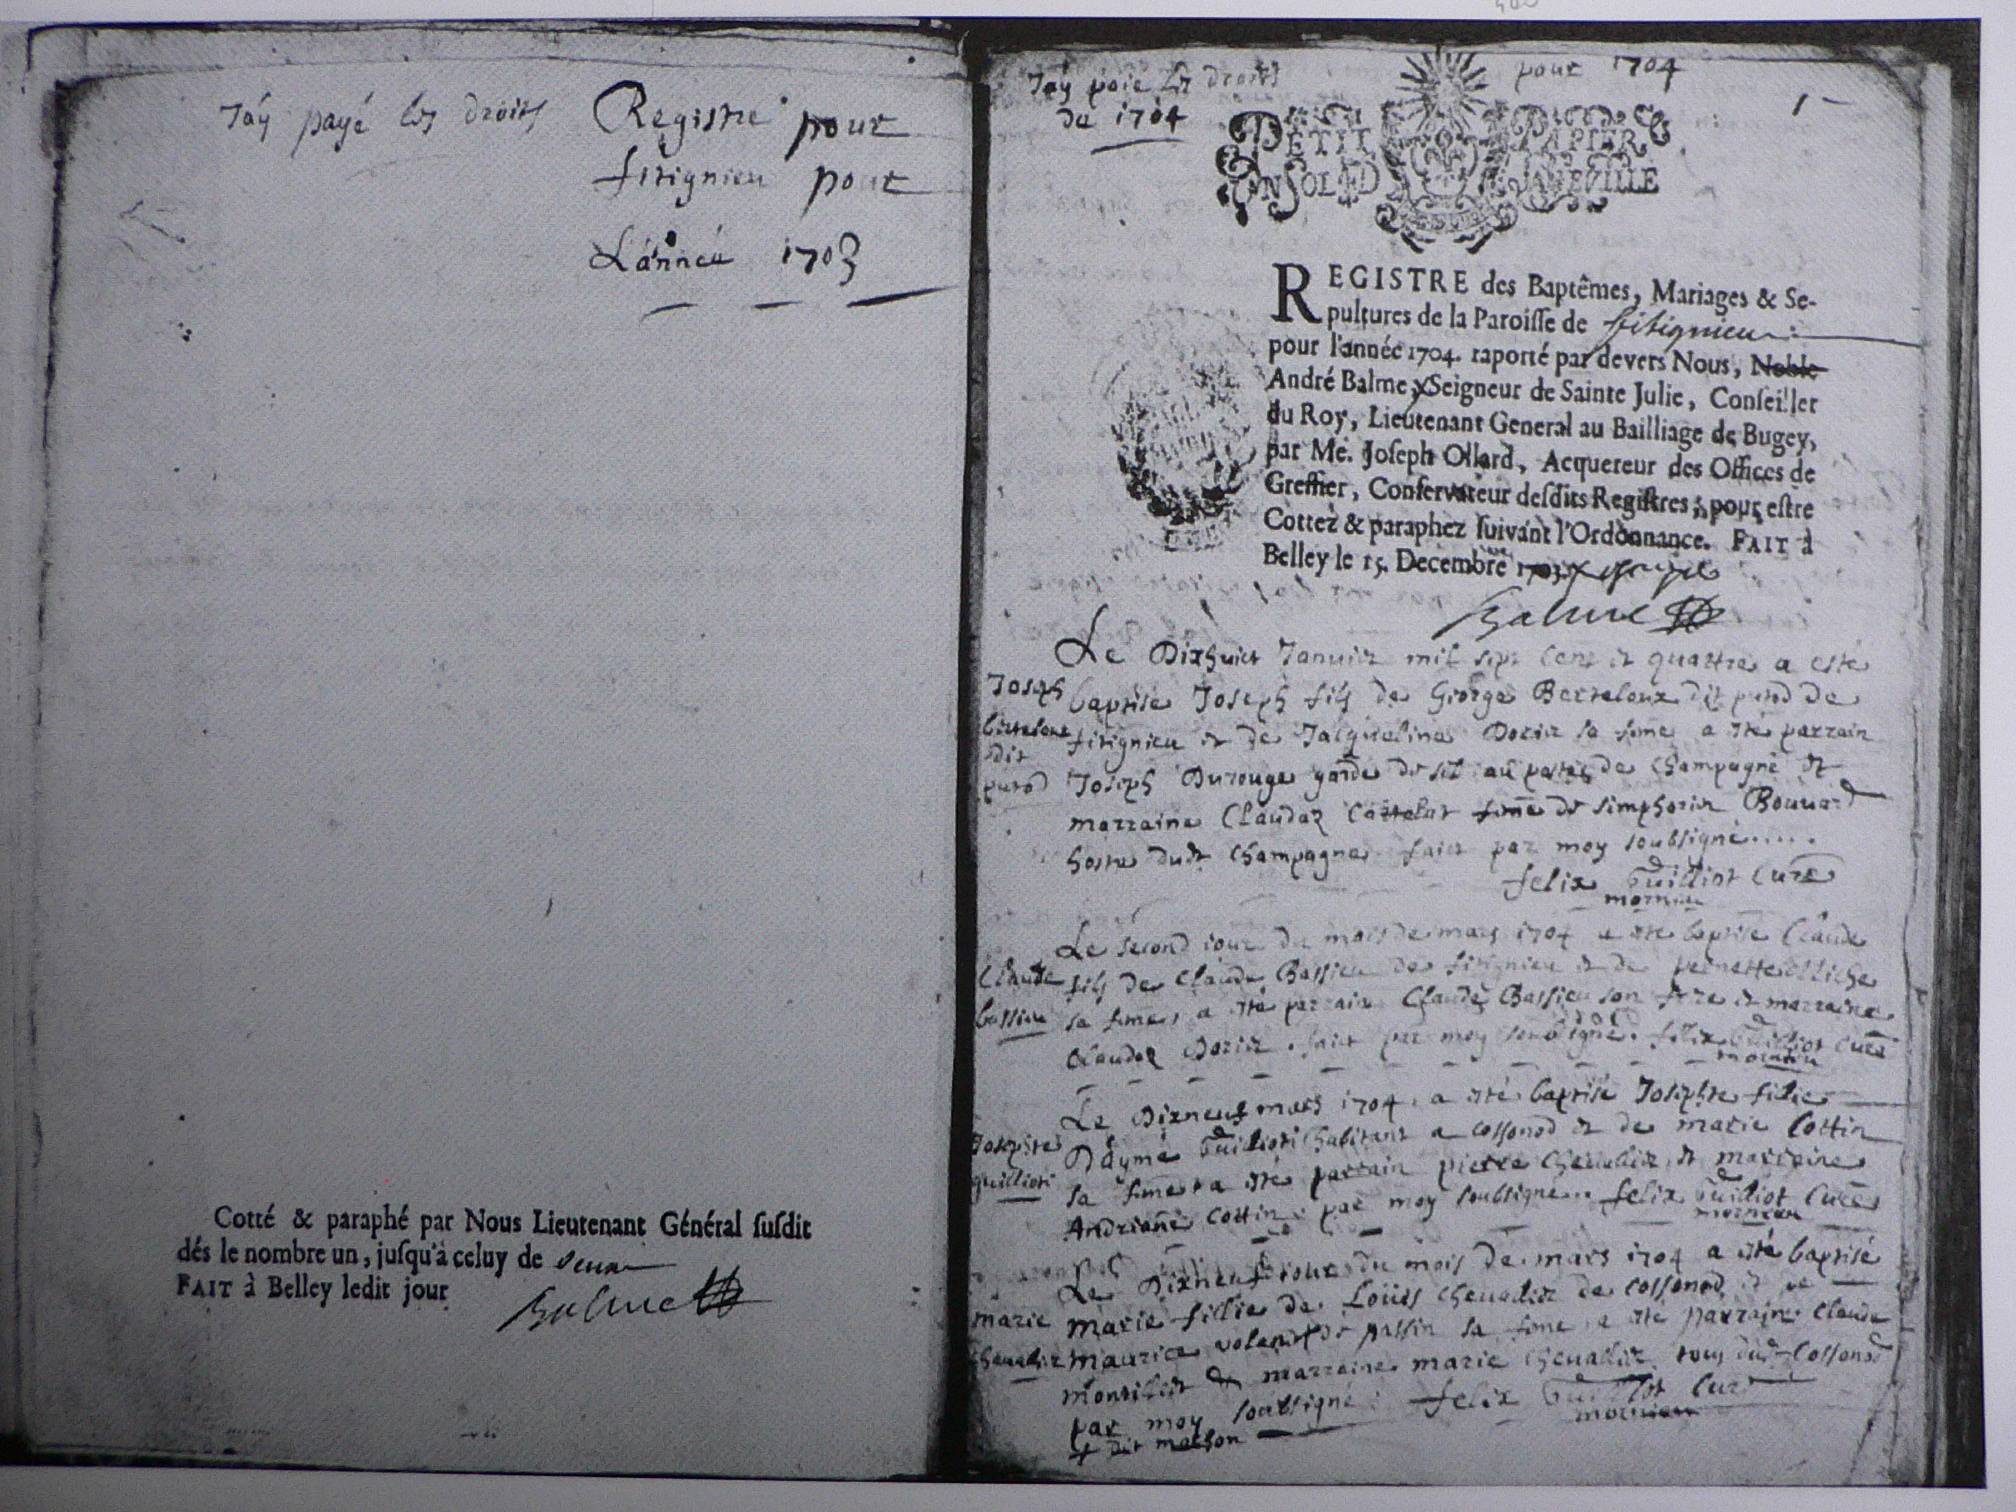 Jáy payé les droits
Registre pour
fitignieu pour
L'année 1703
Cotté & paraphé par Nous Lieutenant Général suſdit
dés le nombre un, juſqu'à celuy de
FAIT à Belley ledit jour
Balme
Jáy paié les droits
de 1704
pour 1704
1
PETIT PAPIER
UN SOL 4 D LA FEVILLE
REGISTRE des Baptêmes, Mariages & Se-
pultures de la Paroiſſe de fitignieu
pour l'année 1704. raporté par devers Nous, Noble
André Balme, Seigneur de Sainte Julie, Conſeiller
du Roy, Lieutenant General au Bailliage de Bugey,
par Me. Joſeph Ollard, Acquereur des Offices de
Greffier, Conſervateur deſdits Regiſtres, pour eſtre
Cottez & paraphez ſuivant l'Ordonnance. FAIT à
Belley le 15. Decembre 1703
Balme
Joseph
Berthelout
dit
purod
Le Dixhuict Januier mil sept cent et quattre a esté
baptise Joseph fils de George Berteloux dit purod de
fitignieu et de Jacqueline Dorier sa fême a ete parrain
Joseph Durouge garde de sel au partes de Champagne et
marraine Claudaz Cattelut fême de simphorien Bouuard
hoste dudt Champagne faict par moy soubsigné....
felix Guilliot Curé
mornieu
Claude
bassieu
Le second iour du mois de mars 1704 a ete baptise Claude
fils de Claude Bassieu de fitignieu et de pernette
sa fême, a ete parrain Claude Bassieu son frere et marraine
Claudaz Dorier. faict par moy soubsigné. felix Guilliot Curé
mornieu
Josephte
guilliot
Le Dixneuf mars 1704. a eté baptisé Josephte fillie
D'aymé Guilliot habitant a Cossonod et de marie Cottin
sa fême a ete parrain pierre Cheuallier et marraine
Andrianne Cottin. par moy soubsigné.. felix Guilliot Curé
mornieu
marie
Cheuallier
Le Dixneuf iour du mois de mars 1704 a eté baptisé
marie fillie de Louis Cheuallier de Cossonod et de
maurice + de passin sa fême a eté parrain Claude
& marraine marie Cheuallier tous dudt Cossonod
par moy soubsigné : felix Guilliot Curé
mornieu
+ dit masson